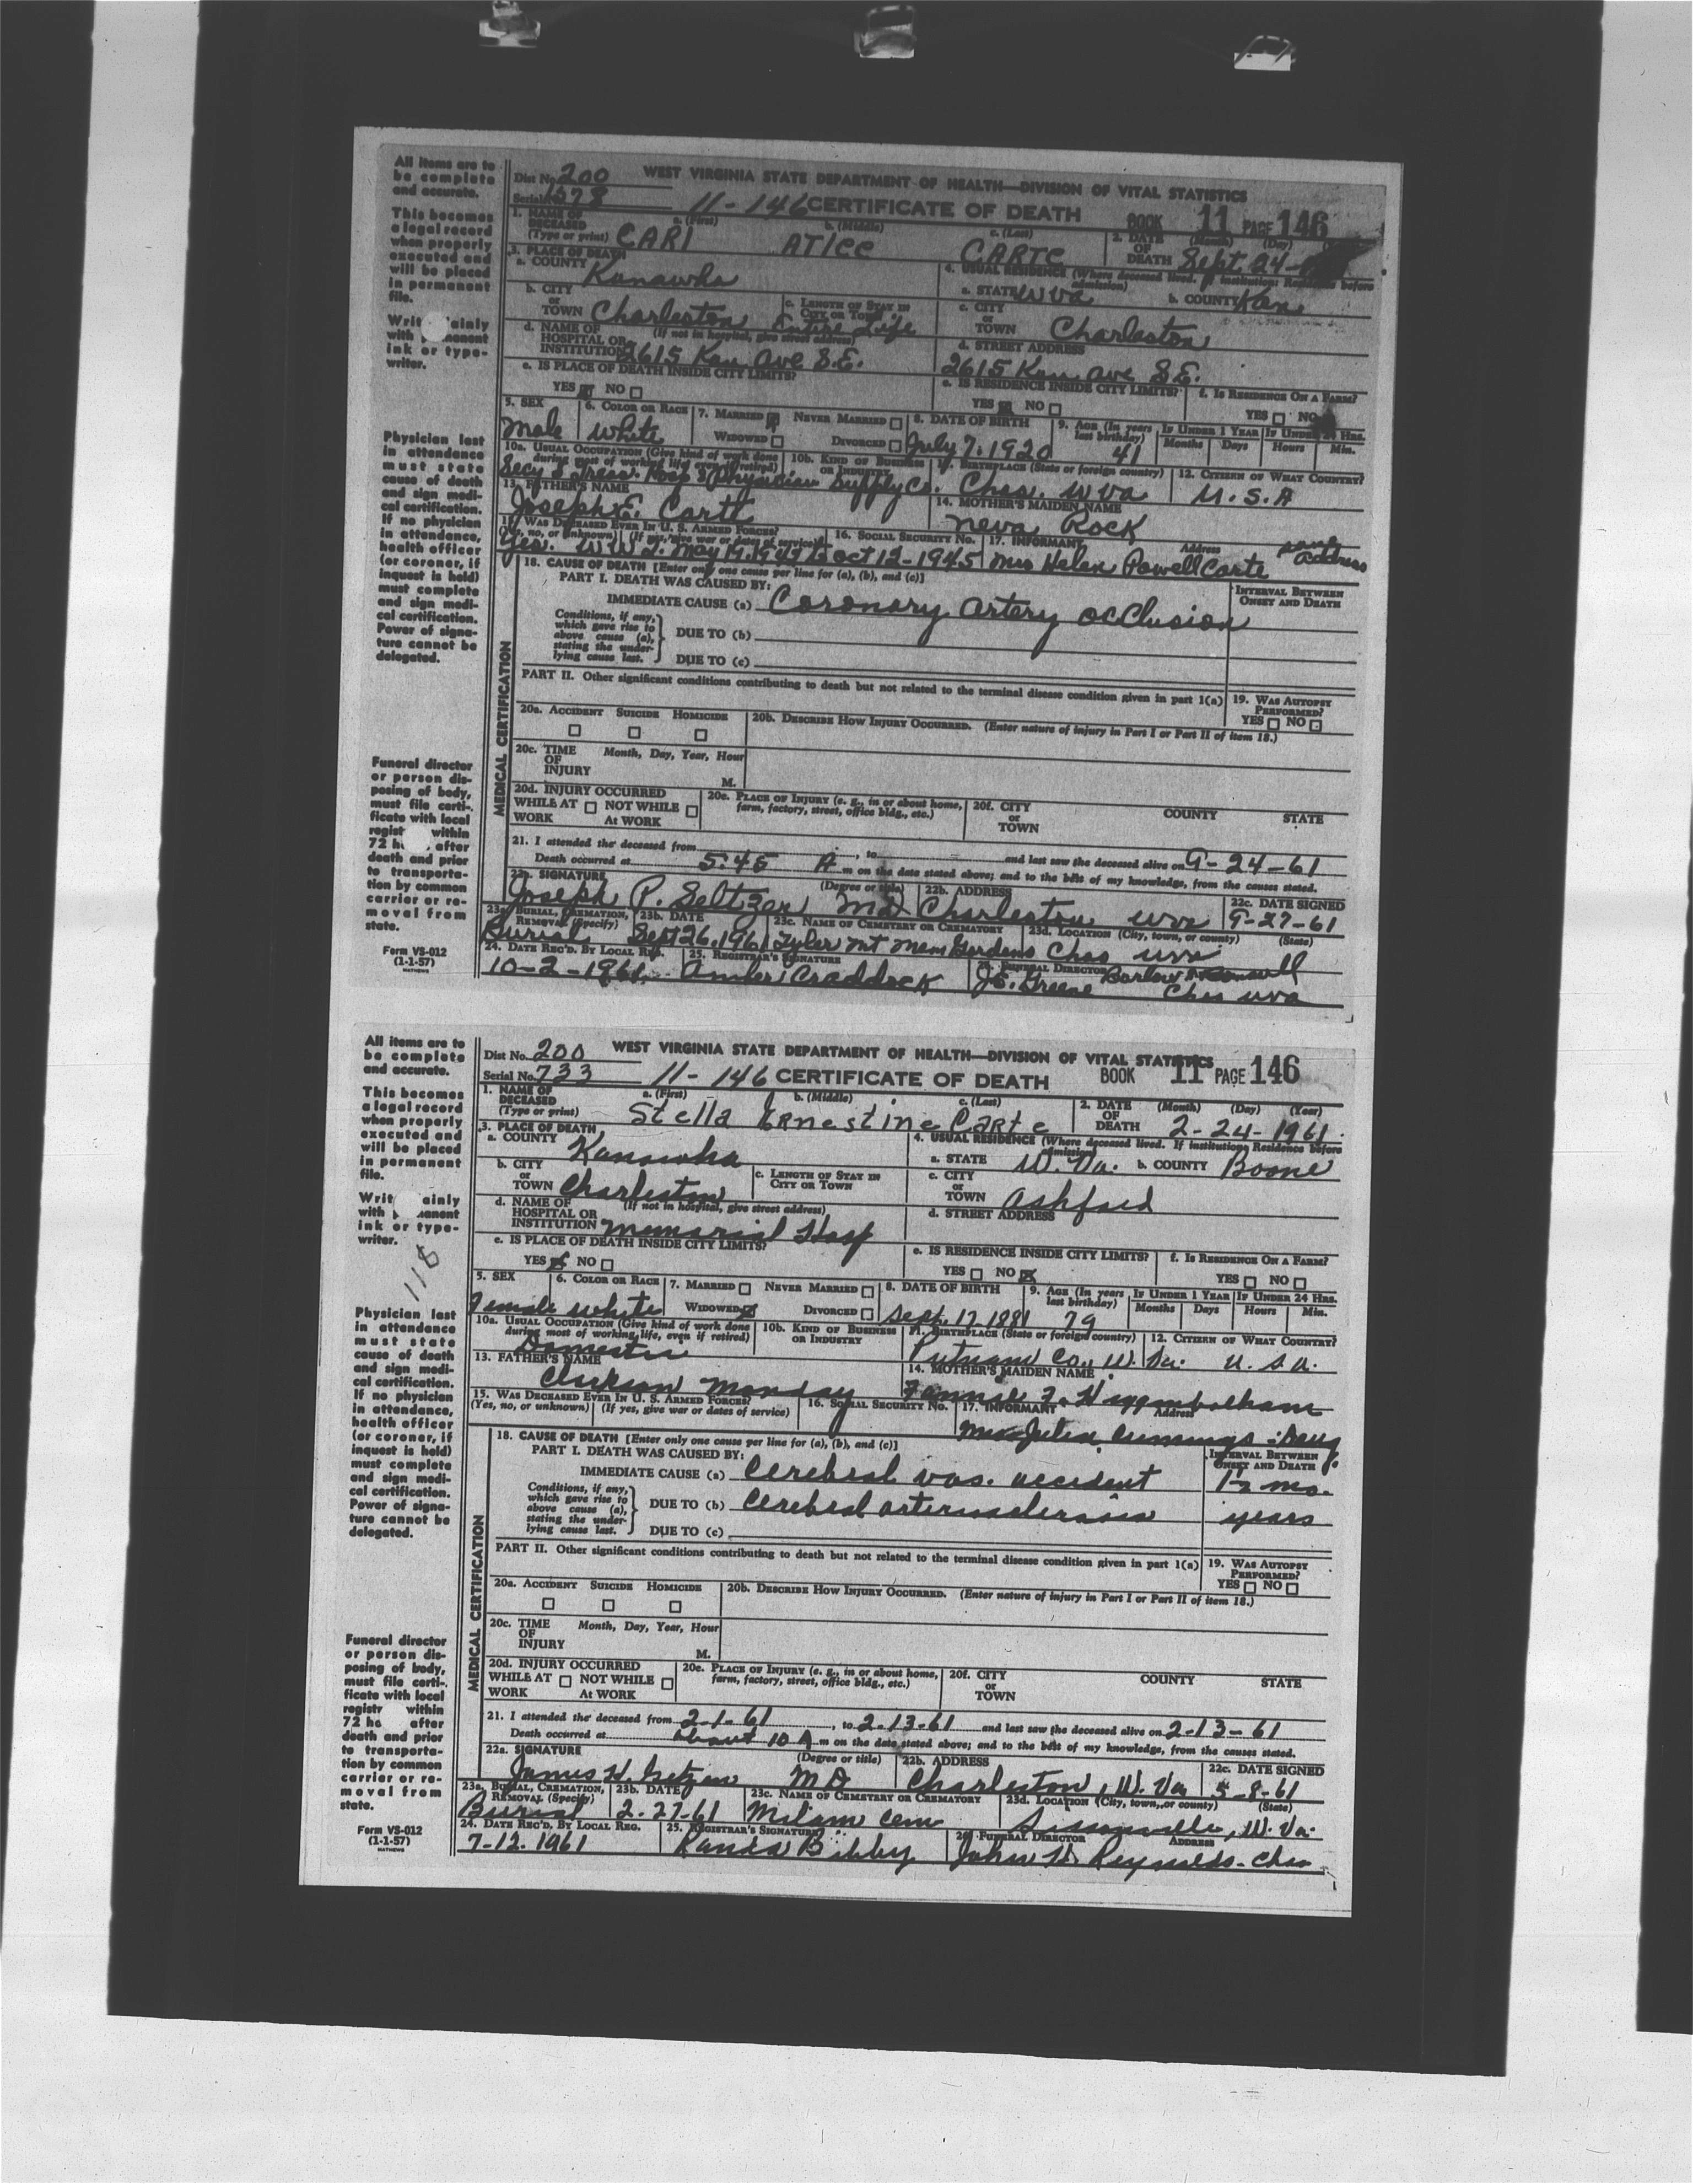 All items are to
be complete
and accurate.
This becomes
a legal record
when properly
executed and
will be placed
in permanent
file.
ink or type-
writer.
Physician last
in attendance
must state
cause of death
and sign medi-
cal certification.
If no physician
in attendance,
health officer
(or coroner, if
inquest is held)
must complete
and sign medi-
cal certification.
Power of signa-
ture cannot be
delegated.
Funeral director
or person dis-
posing of body,
must file certi-
ficate with local
within
72 after
death and prior
to transporta-
tion by common
carrier or re-
moval from
state.
Form VS-012
(1-1-57)
MATHEWS
Dist No. 200 WEST VIRGINIA STATE DEPARTMENT OF HEALTH—DIVISION OF VITAL STATISTICS
Serial No. 11-146 CERTIFICATE OF DEATH BOOK 11 PAGE 146
1. NAME OF DECEASED (Type or print) a. (First) b. (Middle) c. (Last) 2. DATE OF DEATH (Month) (Day)
CARl ATlee CARTE Sept. 24-
3. PLACE OF DEATH 4. USUAL RESIDENCE (Where deceased lived. If institution: Residence before admission)
a. COUNTY Kanawha a. STATE W Va b. COUNTY Kan
b. CITY or TOWN Charleston c. LENGTH OF STAY IN CITY OR TOWN Entire Life c. CITY or TOWN Charleston
d. NAME OF HOSPITAL OR INSTITUTION (If not in hospital, give street address) 2615 Kan Ave S.E. d. STREET ADDRESS 2615 Kan Ave S.E.
e. IS PLACE OF DEATH INSIDE CITY LIMITS? YES NO e. IS RESIDENCE INSIDE CITY LIMITS? YES NO f. Is RESIDENCE ON A FARM? YES NO
5. SEX 6. COLOR OR RACE 7. MARRIED NEVER MARRIED WIDOWED DIVORCED 8. DATE OF BIRTH 9. AGE (In years last birthday) IF UNDER 1 YEAR Months Days IF UNDER 24 HRS. Hours Min.
Male White July 7. 1920 41
10a. USUAL OCCUPATION (Give kind of work done during most of working life, even if retired) 10b. KIND OF BUSINESS OR INDUSTRY 11. BIRTHPLACE (State or foreign country) 12. CITIZEN OF WHAT COUNTRY?
Secy & Treas. Hosp & Physician Supply Co. Chas. W Va U.S.A
13. FATHER'S NAME 14. MOTHER'S MAIDEN NAME
Joseph E. Carte Neva Rock
15. WAS DECEASED EVER IN U. S. ARMED FORCES? (Yes, no, or unknown) (If yes, give war or dates of service) 16. SOCIAL SECURITY No. 17. INFORMANT Address
Yes. W W 2. May 19, to Oct 12-1945 Mrs Helen Powell Carte same address
MEDICAL CERTIFICATION
18. CAUSE OF DEATH [Enter only one cause per line for (a), (b), and (c)]
PART I. DEATH WAS CAUSED BY: INTERVAL BETWEEN ONSET AND DEATH
IMMEDIATE CAUSE (a) Coronary artery occlusion
Conditions, if any, which gave rise to above cause (a), stating the under-lying cause last. DUE TO (b)
DUE TO (c)
PART II. Other significant conditions contributing to death but not related to the terminal disease condition given in part 1(a) 19. WAS AUTOPSY PERFORMED? YES NO
20a. ACCIDENT SUICIDE HOMICIDE 20b. DESCRIBE HOW INJURY OCCURRED. (Enter nature of injury in Part I or Part II of item 18.)
20c. TIME OF INJURY Month, Day, Year, Hour M.
20d. INJURY OCCURRED WHILE AT WORK NOT WHILE AT WORK 20e. PLACE OF INJURY (e. g., in or about home, farm, factory, street, office bldg., etc.) 20f. CITY or TOWN COUNTY STATE
21. I attended the deceased from , to and last saw the deceased alive on 9-24-61
Death occurred at 5:45 A m on the date stated above; and to the best of my knowledge, from the causes stated.
22a. SIGNATURE (Degree or title) 22b. ADDRESS 22c. DATE SIGNED
Joseph P. Seltzer MD Charleston W Va 9-27-61
23a. BURIAL, CREMATION, REMOVAL (Specify) 23b. DATE 23c. NAME OF CEMETERY OR CREMATORY 23d. LOCATION (City, town, or county) (State)
Burial Sept 26, 1961 Tyler Mt Mem Gardens Chas W Va
24. DATE REC'D. BY LOCAL REG. 25. REGISTRAR'S SIGNATURE 26. FUNERAL DIRECTOR
10-2-1961 Amber Craddock J.E. Greene Barlow Bonsall Chas W Va
All items are to
be complete
and accurate.
This becomes
a legal record
when properly
executed and
will be placed
in permanent
file.
ink or type-
writer.
118
Physician last
in attendance
must state
cause of death
and sign medi-
cal certification.
If no physician
in attendance,
health officer
(or coroner, if
inquest is held)
must complete
and sign medi-
cal certification.
Power of signa-
ture cannot be
delegated.
Funeral director
or person dis-
posing of body,
must file certi-
ficate with local
within
72 after
death and prior
to transporta-
tion by common
carrier or re-
moval from
state.
Form VS-012
(1-1-57)
MATHEWS
Dist No. 200 WEST VIRGINIA STATE DEPARTMENT OF HEALTH—DIVISION OF VITAL STATISTICS
Serial No. 733 11-146 CERTIFICATE OF DEATH BOOK 11 PAGE 146
1. NAME OF DECEASED (Type or print) a. (First) b. (Middle) c. (Last) 2. DATE OF DEATH (Month) (Day) (Year)
Stella Ernestine Carte 2-24-1961.
3. PLACE OF DEATH 4. USUAL RESIDENCE (Where deceased lived. If institution: Residence before admission)
a. COUNTY Kanawha a. STATE W. Va. b. COUNTY Boone
b. CITY or TOWN Charleston c. LENGTH OF STAY IN CITY OR TOWN c. CITY or TOWN Ashford
d. NAME OF HOSPITAL OR INSTITUTION (If not in hospital, give street address) Memorial Hosp d. STREET ADDRESS
e. IS PLACE OF DEATH INSIDE CITY LIMITS? YES NO e. IS RESIDENCE INSIDE CITY LIMITS? YES NO f. Is RESIDENCE ON A FARM? YES NO
5. SEX 6. COLOR OR RACE 7. MARRIED NEVER MARRIED WIDOWED DIVORCED 8. DATE OF BIRTH 9. AGE (In years last birthday) IF UNDER 1 YEAR Months Days IF UNDER 24 HRS. Hours Min.
Female White Sept. 17 1881 79
10a. USUAL OCCUPATION (Give kind of work done during most of working life, even if retired) 10b. KIND OF BUSINESS OR INDUSTRY 11. BIRTHPLACE (State or foreign country) 12. CITIZEN OF WHAT COUNTRY?
Domestic Putnam Co., W. Va. U. S. A.
13. FATHER'S NAME 14. MOTHER'S MAIDEN NAME
Clarkson Monday Fannie F. Higgenbotham
15. WAS DECEASED EVER IN U. S. ARMED FORCES? (Yes, no, or unknown) (If yes, give war or dates of service) 16. SOCIAL SECURITY No. 17. INFORMANT Address
Mrs Julia Cummings - Daug.
MEDICAL CERTIFICATION
18. CAUSE OF DEATH [Enter only one cause per line for (a), (b), and (c)]
PART I. DEATH WAS CAUSED BY: INTERVAL BETWEEN ONSET AND DEATH
IMMEDIATE CAUSE (a) Cerebral vas. accident mo.
Conditions, if any, which gave rise to above cause (a), stating the under-lying cause last. DUE TO (b) Cerebral arteriosclerosis years
DUE TO (c)
PART II. Other significant conditions contributing to death but not related to the terminal disease condition given in part 1(a) 19. WAS AUTOPSY PERFORMED? YES NO
20a. ACCIDENT SUICIDE HOMICIDE 20b. DESCRIBE HOW INJURY OCCURRED. (Enter nature of injury in Part I or Part II of item 18.)
20c. TIME OF INJURY Month, Day, Year, Hour M.
20d. INJURY OCCURRED WHILE AT WORK NOT WHILE AT WORK 20e. PLACE OF INJURY (e. g., in or about home, farm, factory, street, office bldg., etc.) 20f. CITY or TOWN COUNTY STATE
21. I attended the deceased from 2-1-61, to 2-13-61 and last saw the deceased alive on 2-13-61
Death occurred at about 10 A m on the date stated above; and to the best of my knowledge, from the causes stated.
22a. SIGNATURE (Degree or title) 22b. ADDRESS 22c. DATE SIGNED
James H. Getzen MD Charleston, W. Va 5-8-61
23a. BURIAL, CREMATION, REMOVAL (Specify) 23b. DATE 23c. NAME OF CEMETERY OR CREMATORY 23d. LOCATION (City, town, or county) (State)
Burial 2-27-61 Milam Cem Sissonville, W. Va.
24. DATE REC'D. BY LOCAL REG. 25. REGISTRAR'S SIGNATURE 26. FUNERAL DIRECTOR ADDRESS
7-12-1961 Randa Bibby John H. Reynolds - Chas